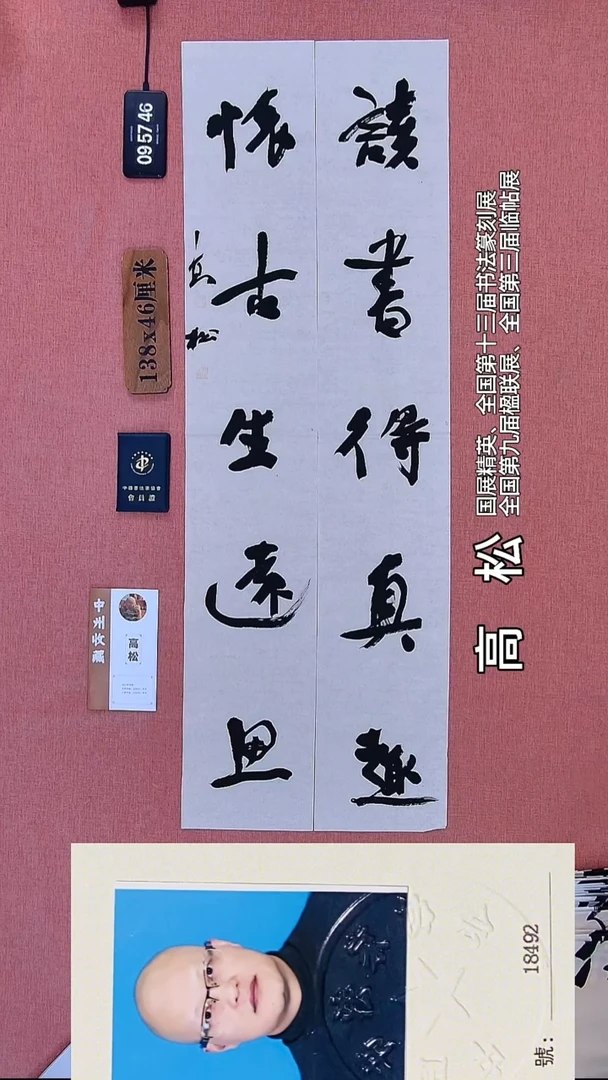 讀書得真趣
懷古生遠思
松
高松
国展精英、全国第十三届书法篆刻展
全国第九届楹联展、全国第三届临帖展
09 57 46
138x46厘米
會員證
高松
號：18492